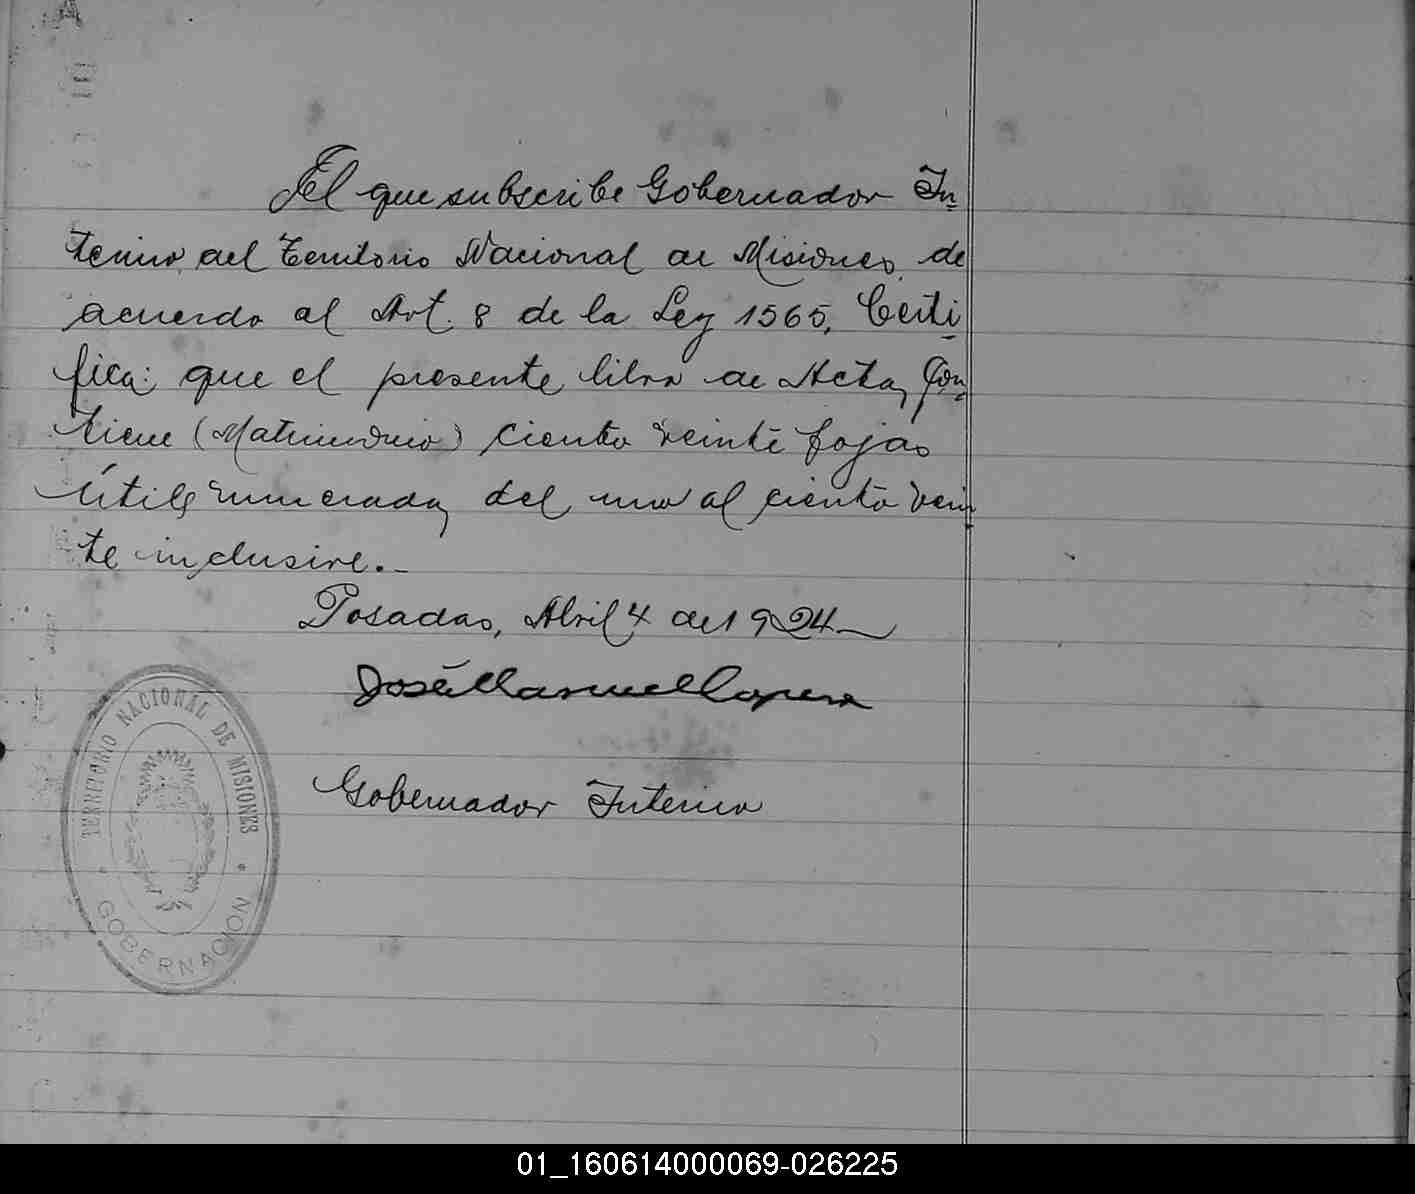 El que subscribe Gobernador In-
terino del Territorio Nacional de Misiones, de
acuerdo al Art. 8 de la Ley 1565, Certi-
fica: que el presente libro de Actas con-
tiene (Matrimonio) ciento veinte fojas
útiles numeradas del uno al ciento vein-
te inclusive.-
Posadas, Abril 4 de 1924
José Manuel
Gobernador Interino
TERRITORIO NACIONAL DE MISIONES
GOBERNACION
01_160614000069-026225